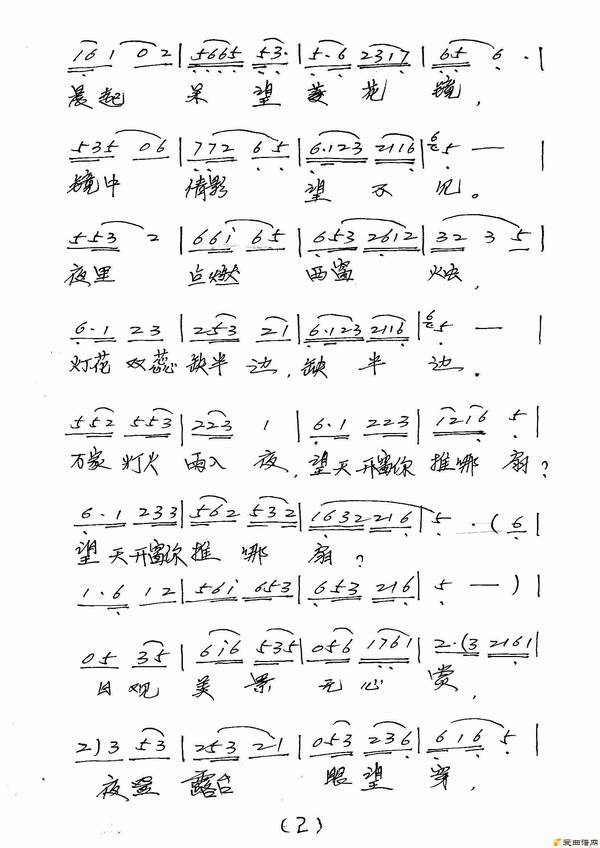 1 6 1 0 2 | 5 6 6 5 5 3 · | 5 · 6 2 3 1 7 | 6 5 6 · |
晨起 呆望菱花镜,
5 3 5 0 6 | 7 7 2 6 5 | 6 · 1 2 3 2 1 1 6 | 5 — |
镜中 倩影 望不见。
5 5 3 2 | 6 6 i 6 5 | 6 5 3 2 6 1 2 | 3 2 3 5 |
夜里 点燃 西窗 烛,
6 · 1 2 3 | 2 5 3 2 1 | 6 · 1 2 3 2 1 1 6 | 5 — |
灯花双蕊缺半边,缺半边。
5 5 2 5 5 3 | 2 2 3 1 | 6 · 1 2 2 3 | 1 2 1 6 5 |
万家灯火雨入夜,望天开窗你推哪扇?
6 · 1 2 3 3 | 5 6 2 5 3 2 | 1 6 3 2 2 1 6 | 5 · ( 6 |
望天开窗你推哪扇?
1 · 6 1 2 | 5 6 i 6 5 3 | 6 5 3 2 1 6 | 5 — ) |
0 5 3 5 | 6 i 6 5 3 5 | 0 5 6 1 7 6 1 | 2 · ( 3 2 1 6 1 |
日观美景无心赏,
2 ) 3 5 3 | 2 5 3 2 1 | 0 5 3 2 3 6 | 6 1 6 5 |
夜坐露台 眼望穿,
(2)
爱曲谱网